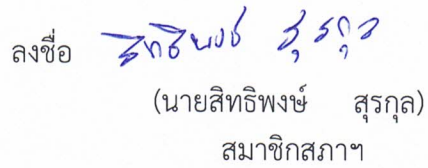 ลงชื่อ สิทธิพงษ์ สุรกุล
(นายสิทธิพงษ์ สุรกุล)
สมาชิกสภาฯ